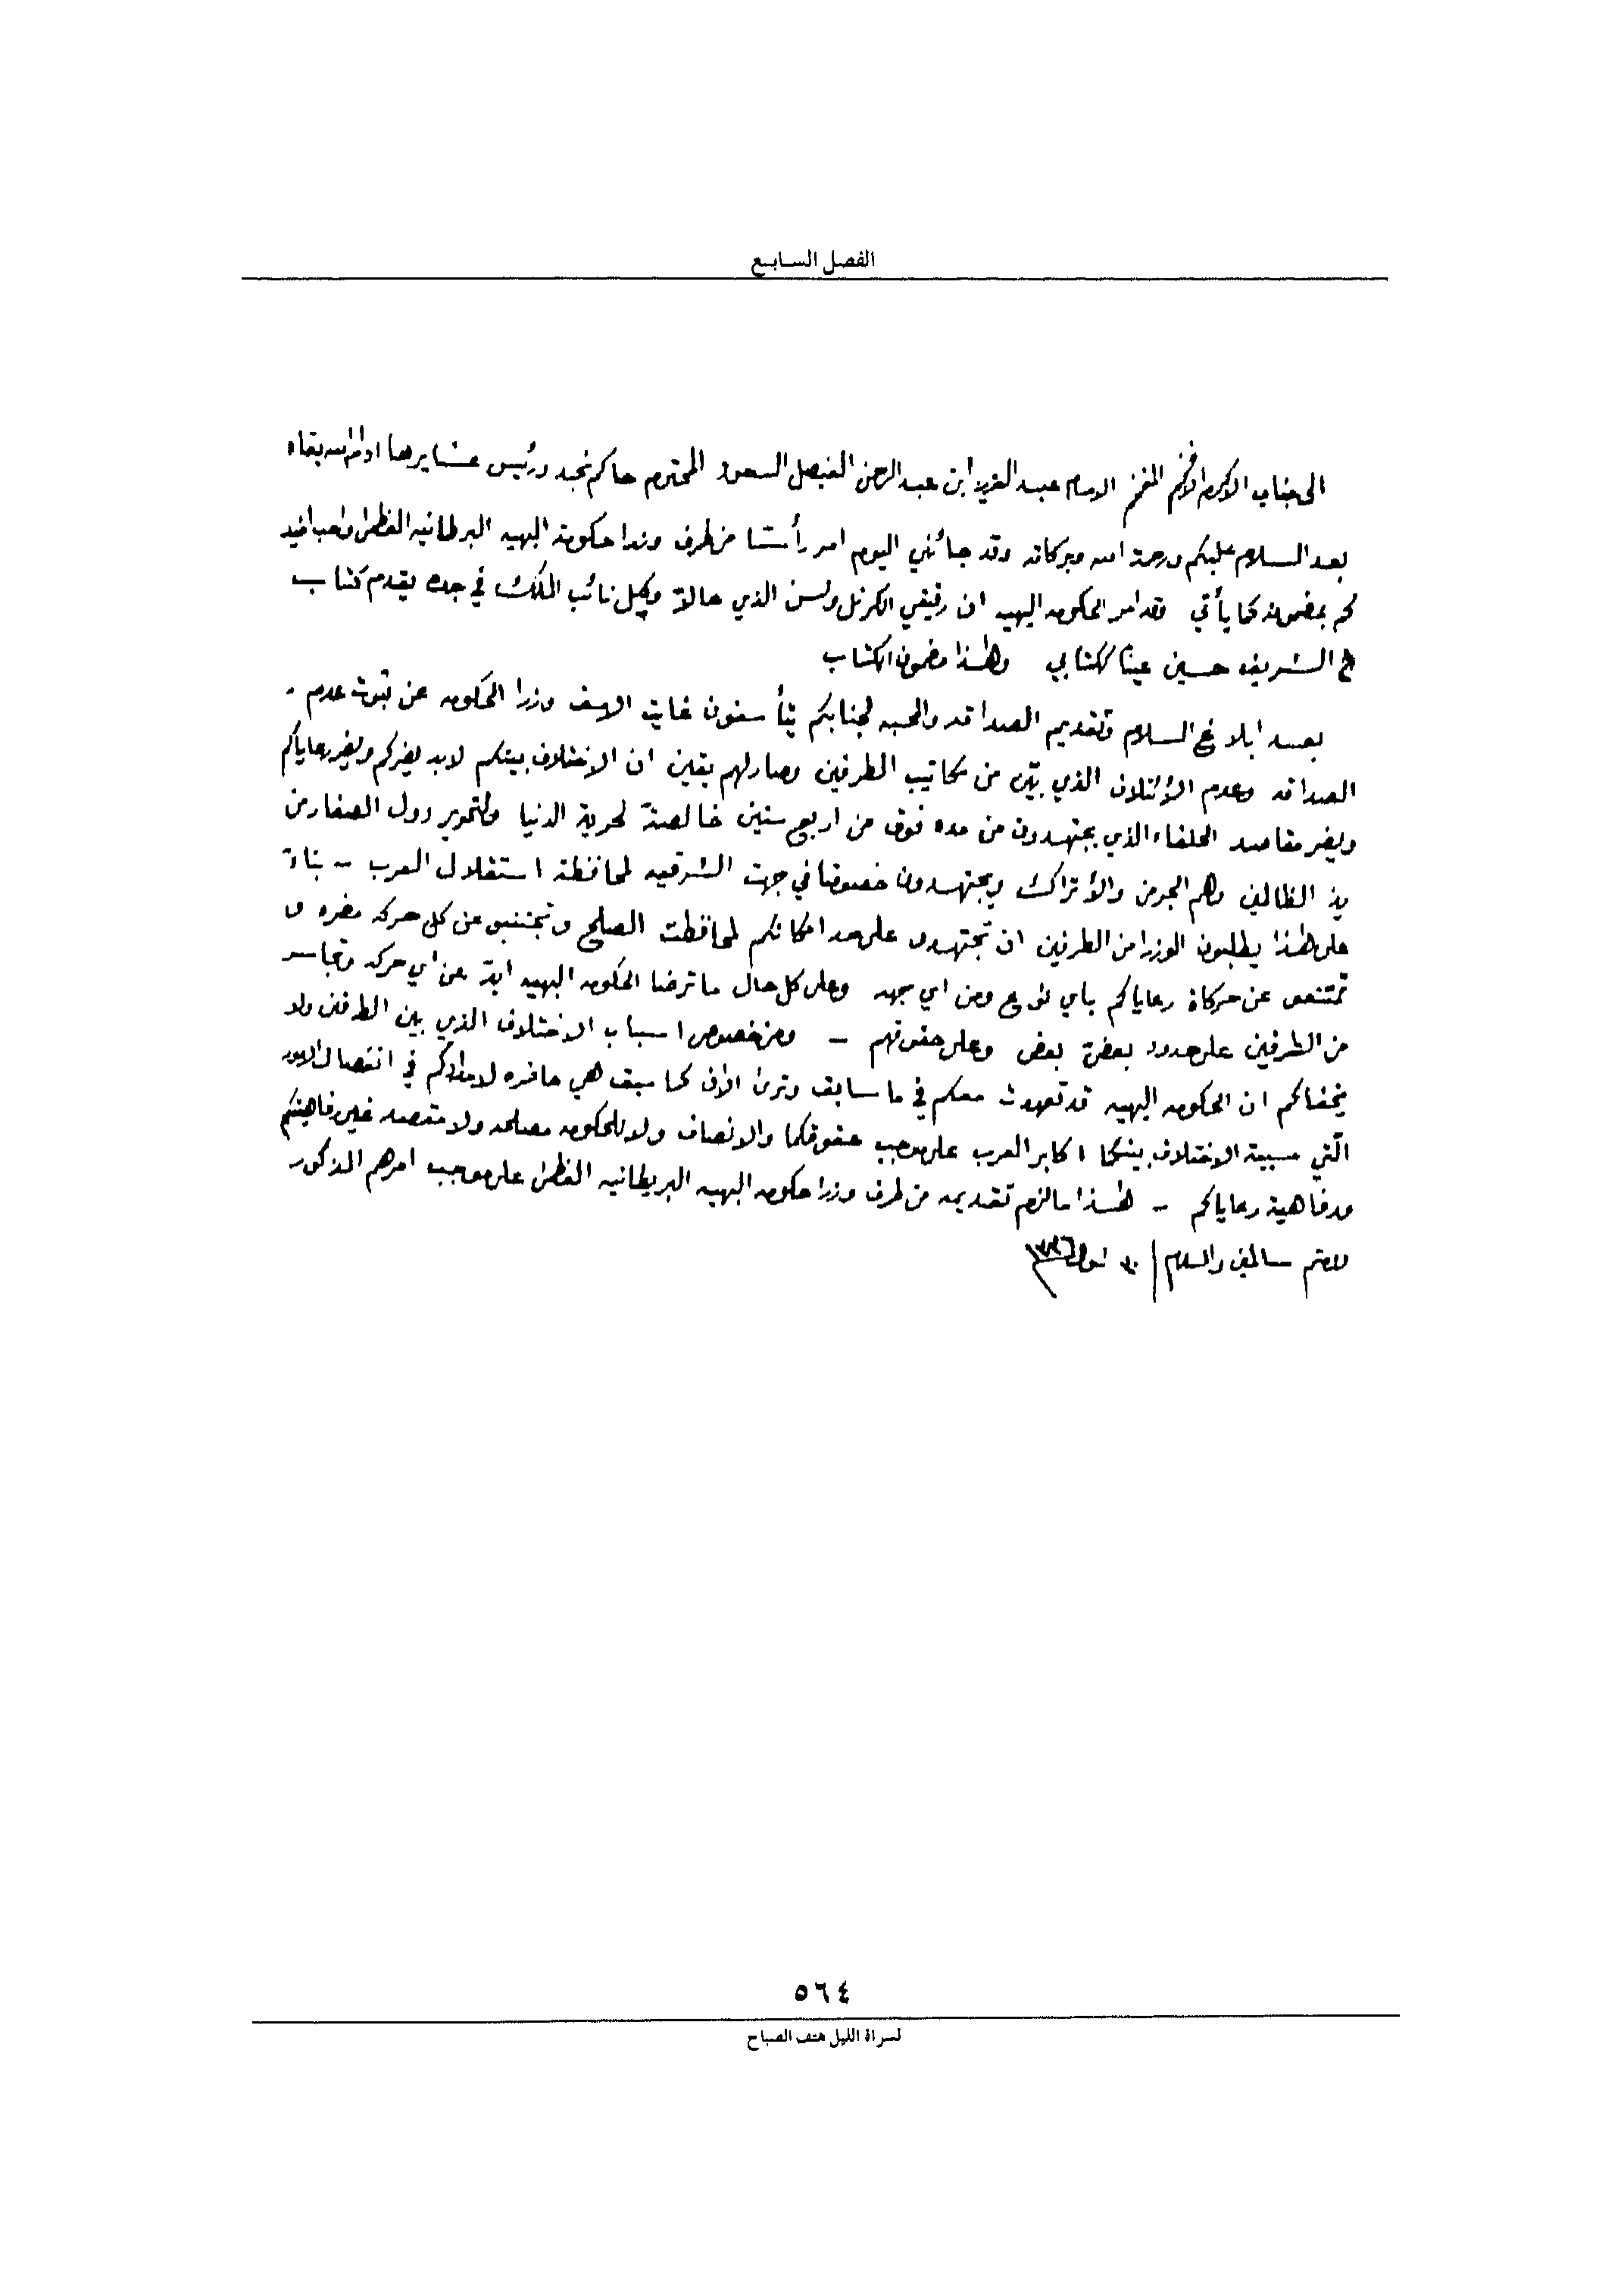 الفصل السابع
الى جناب الاكرم الافخم المفخم الامام عبد العزيز ابن عبد الرحمن الفيصل السعود المحترم حاكم نجد ورئيس عشايرها ادام الله بقاه
بعد السلام عليكم ورحمة الله وبركاته وقد جائني اليوم امر رأسًا من طرف وزرا حكومة البهيه البرطانيه العظمى واحب افيد
لكم بمضمونه كما يأتي وقد امر الحكومه البهيه ان رفيقي الكرنل ولسن الذي حالاً وكيل نائب الملك في جده يقدم كتاب
الشريف حسين عيناً لكتابي وهذا مضمون الكتاب
بعد ابلاغ السلام وتقديم الصداقه والمحبه لجنابكم يتأسفون غايت الاسف وزرا الحكومه عن ثبوت عدم -
الصداقه وعدم الأئتلاف الذي بيّن من مكاتيب الطرفين وصار لهم يقين ان الاختلاف بينكم لابد يضركم ويضر رعاياكم
ويضر مقاصد الحلفاء الذي يجتهدون من مده فوق من اربع سنين خالصةً لحرية الدنيا ولتحوير دول الصغار من
يد الظالمين وهم الجرمن والأتراك ويجتهدون خصوصًا في جهت الشرقيه لمحافظة استقلال العرب - بناءً
على هذا يطلبون الوزرا من الطرفين ان تجتهدوا على حد امكانكم لمحافظت الصلح وتجتنبو عن كل حركه مضره و
تمتنعو عن حركاة رعاياكم باي نوع ومن اي جهه وعلى كل حال ما ترضا الحكومه البهيه ابدً عن اي حركه وتجاسر
من الطرفين على حدود بعضهم بعض وعلى حقوقهم - ومن خصوص اسباب الاختلاف الذي بين الطرفين ولا
يخفاكم ان الحكومه البهيه قد تعهدت معكم في ما سابق وترى الآن كما سبق هي حاضره لامدادكم في انفصال الامور
الّتي مسببة الاختلاف بينكما اكابر العرب على موجب حقوقكما والانصاف ولا للحكومه مصلحه ولا مقصد غير رفاهيتكم
ورفاهية رعاياكم - هذا ما لزم تقديمه من طرف وزرا حكومه البهيه البريطانيه العظمى على موجب امرهم المذكور
ودمتم سالمين والسلام / ٣٠ شوال ١٣٣٦
٥٦٤
لسراة الليل هتف الصباح